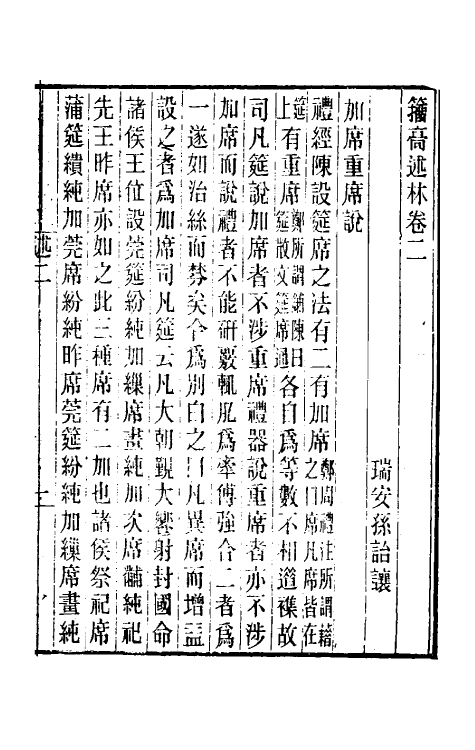 籀廎述林卷二
瑞安孫詒讓
加席重席說
禮經陳設筵席之法有二有加席鄭周禮注所謂藉之曰席凡席皆在
筵上有重席鄭所謂鋪陳曰筵散文筵席通各自爲等數不相遝襍故
司凡筵說加席者不涉重席禮器說重席者亦不涉
加席而說禮者不能硏覈輒凥爲牽傅強合二者爲
一遂如治絲而棼矣今爲別白之曰凡異席而增益
設之者爲加席司凡筵云凡大朝覲大饗射封國命
諸侯王位設莞筵紛純加繅席畫純加次席黼純祀
先王昨席亦如之此三種席有二加也諸侯祭祀席
蒲筵繢純加莞席紛純昨席莞筵紛純加繅席畫純
述二